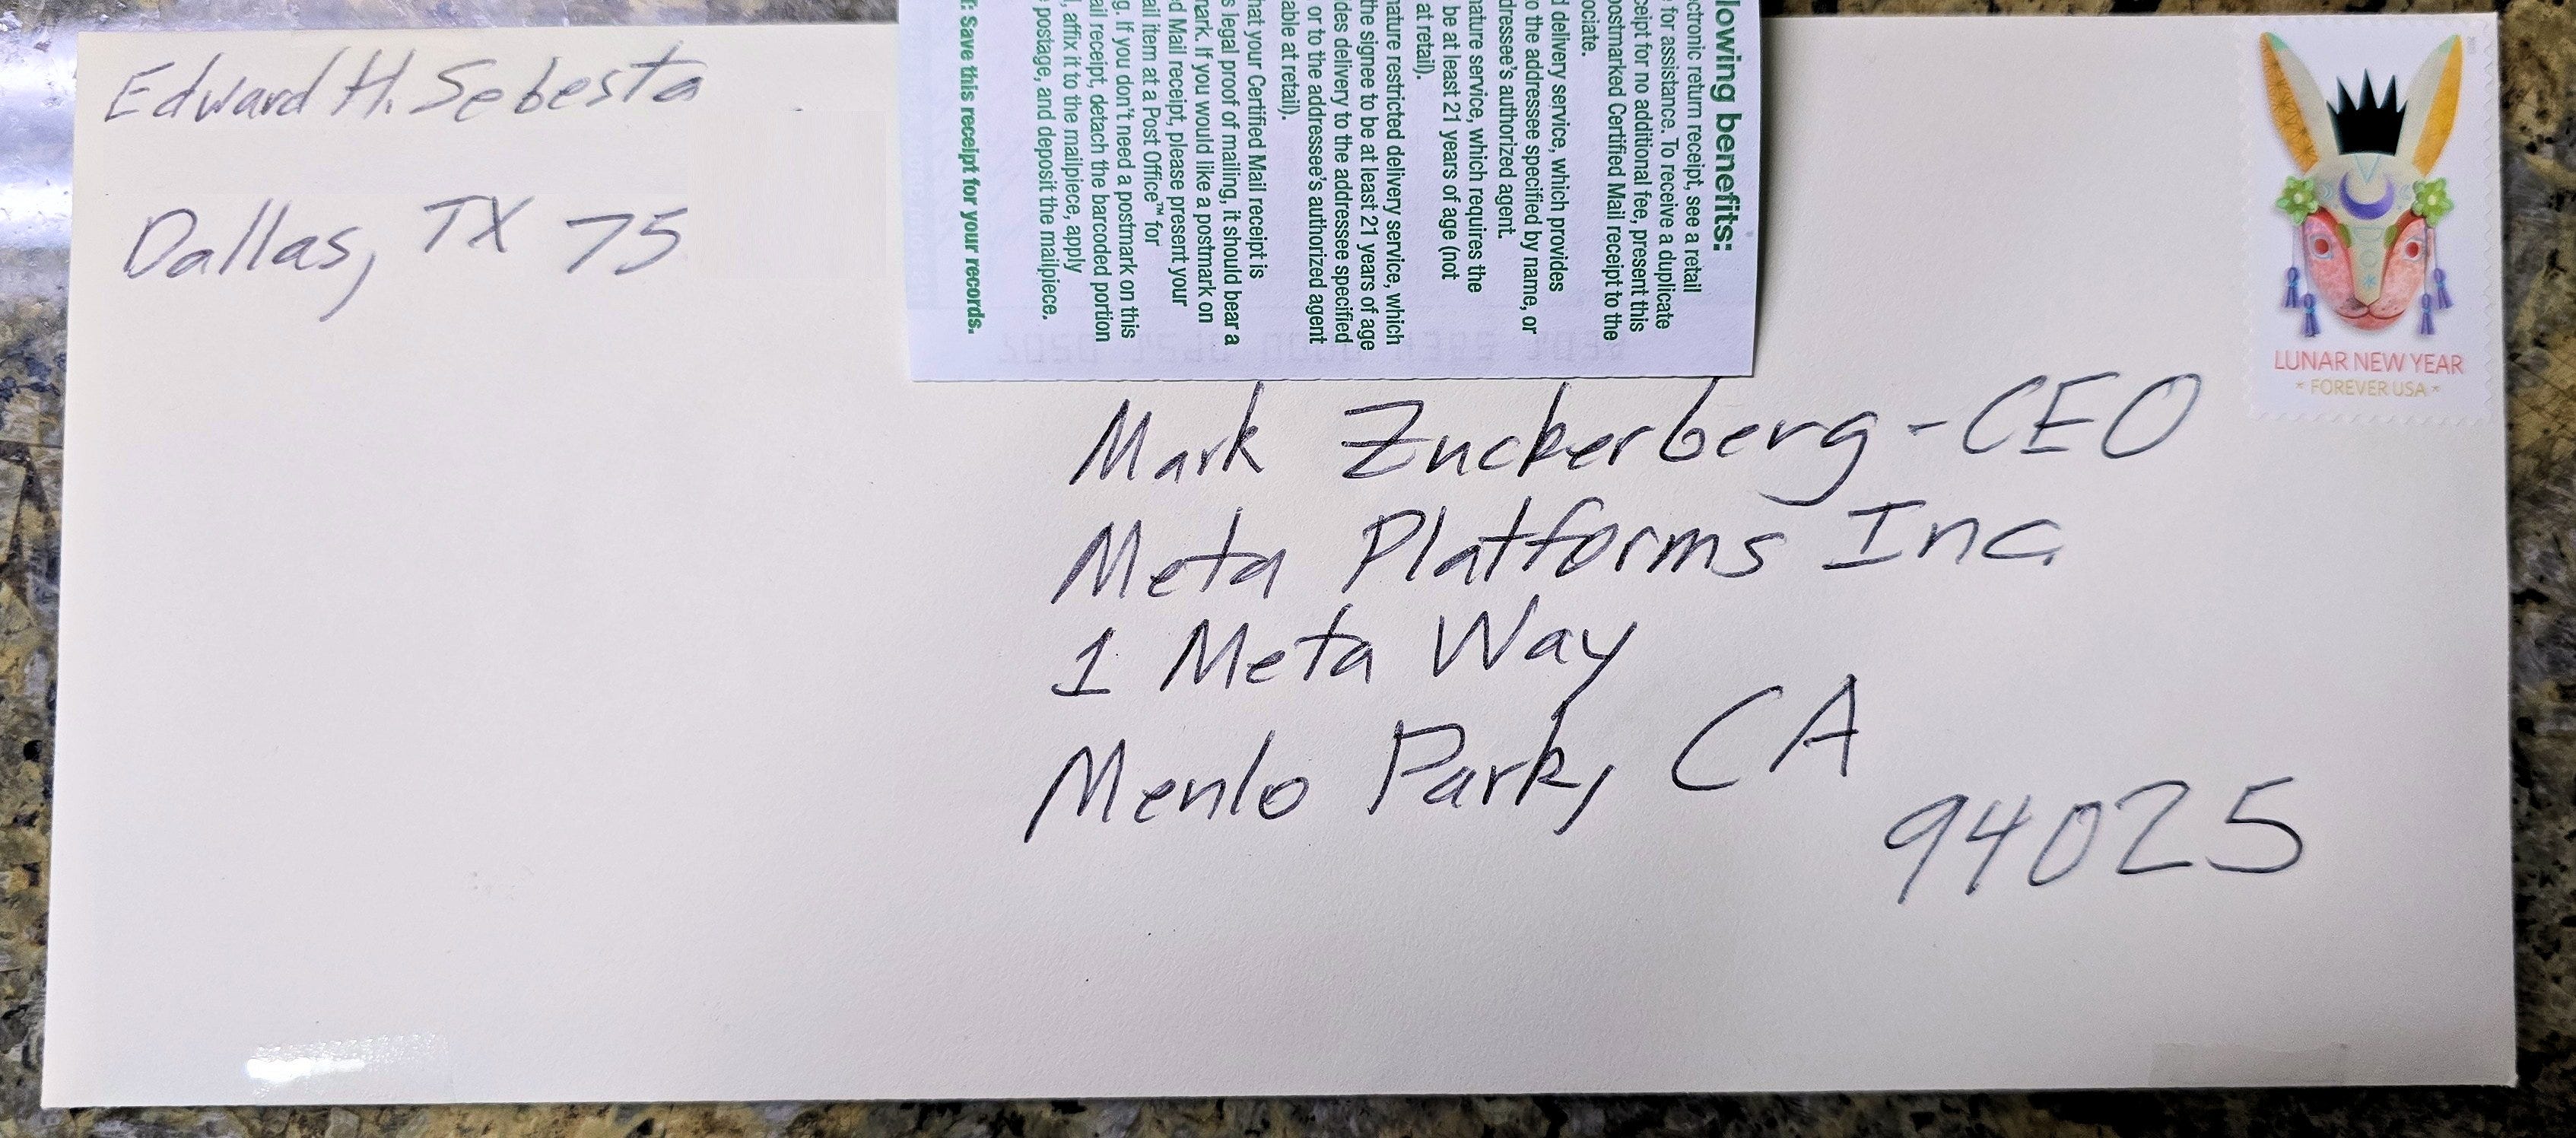 Edward H. Sebesta
Dallas, TX 75
lowing benefits:
ctronic return receipt, see a retail
for assistance. To receive a duplicate
ceipt for no additional fee, present this
postmarked Certified Mail receipt to the
ociate.
d delivery service, which provides
o the addressee specified by name, or
dressee's authorized agent.
nature service, which requires the
be at least 21 years of age (not
at retail).
nature restricted delivery service, which
the signee to be at least 21 years of age
des delivery to the addressee specified
or to the addressee's authorized agent
able at retail).
hat your Certified Mail receipt is
s legal proof of mailing, it should bear a
mark. If you would like a postmark on
ed Mail receipt, please present your
ail item at a Post Office™ for
g. If you don't need a postmark on this
ail receipt, detach the barcoded portion
l, affix it to the mailpiece, apply
postage, and deposit the mailpiece.
T: Save this receipt for your records.
LUNAR NEW YEAR
* FOREVER USA *
Mark Zuckerberg - CEO
Meta Platforms Inc.
1 Meta Way
Menlo Park, CA
94025